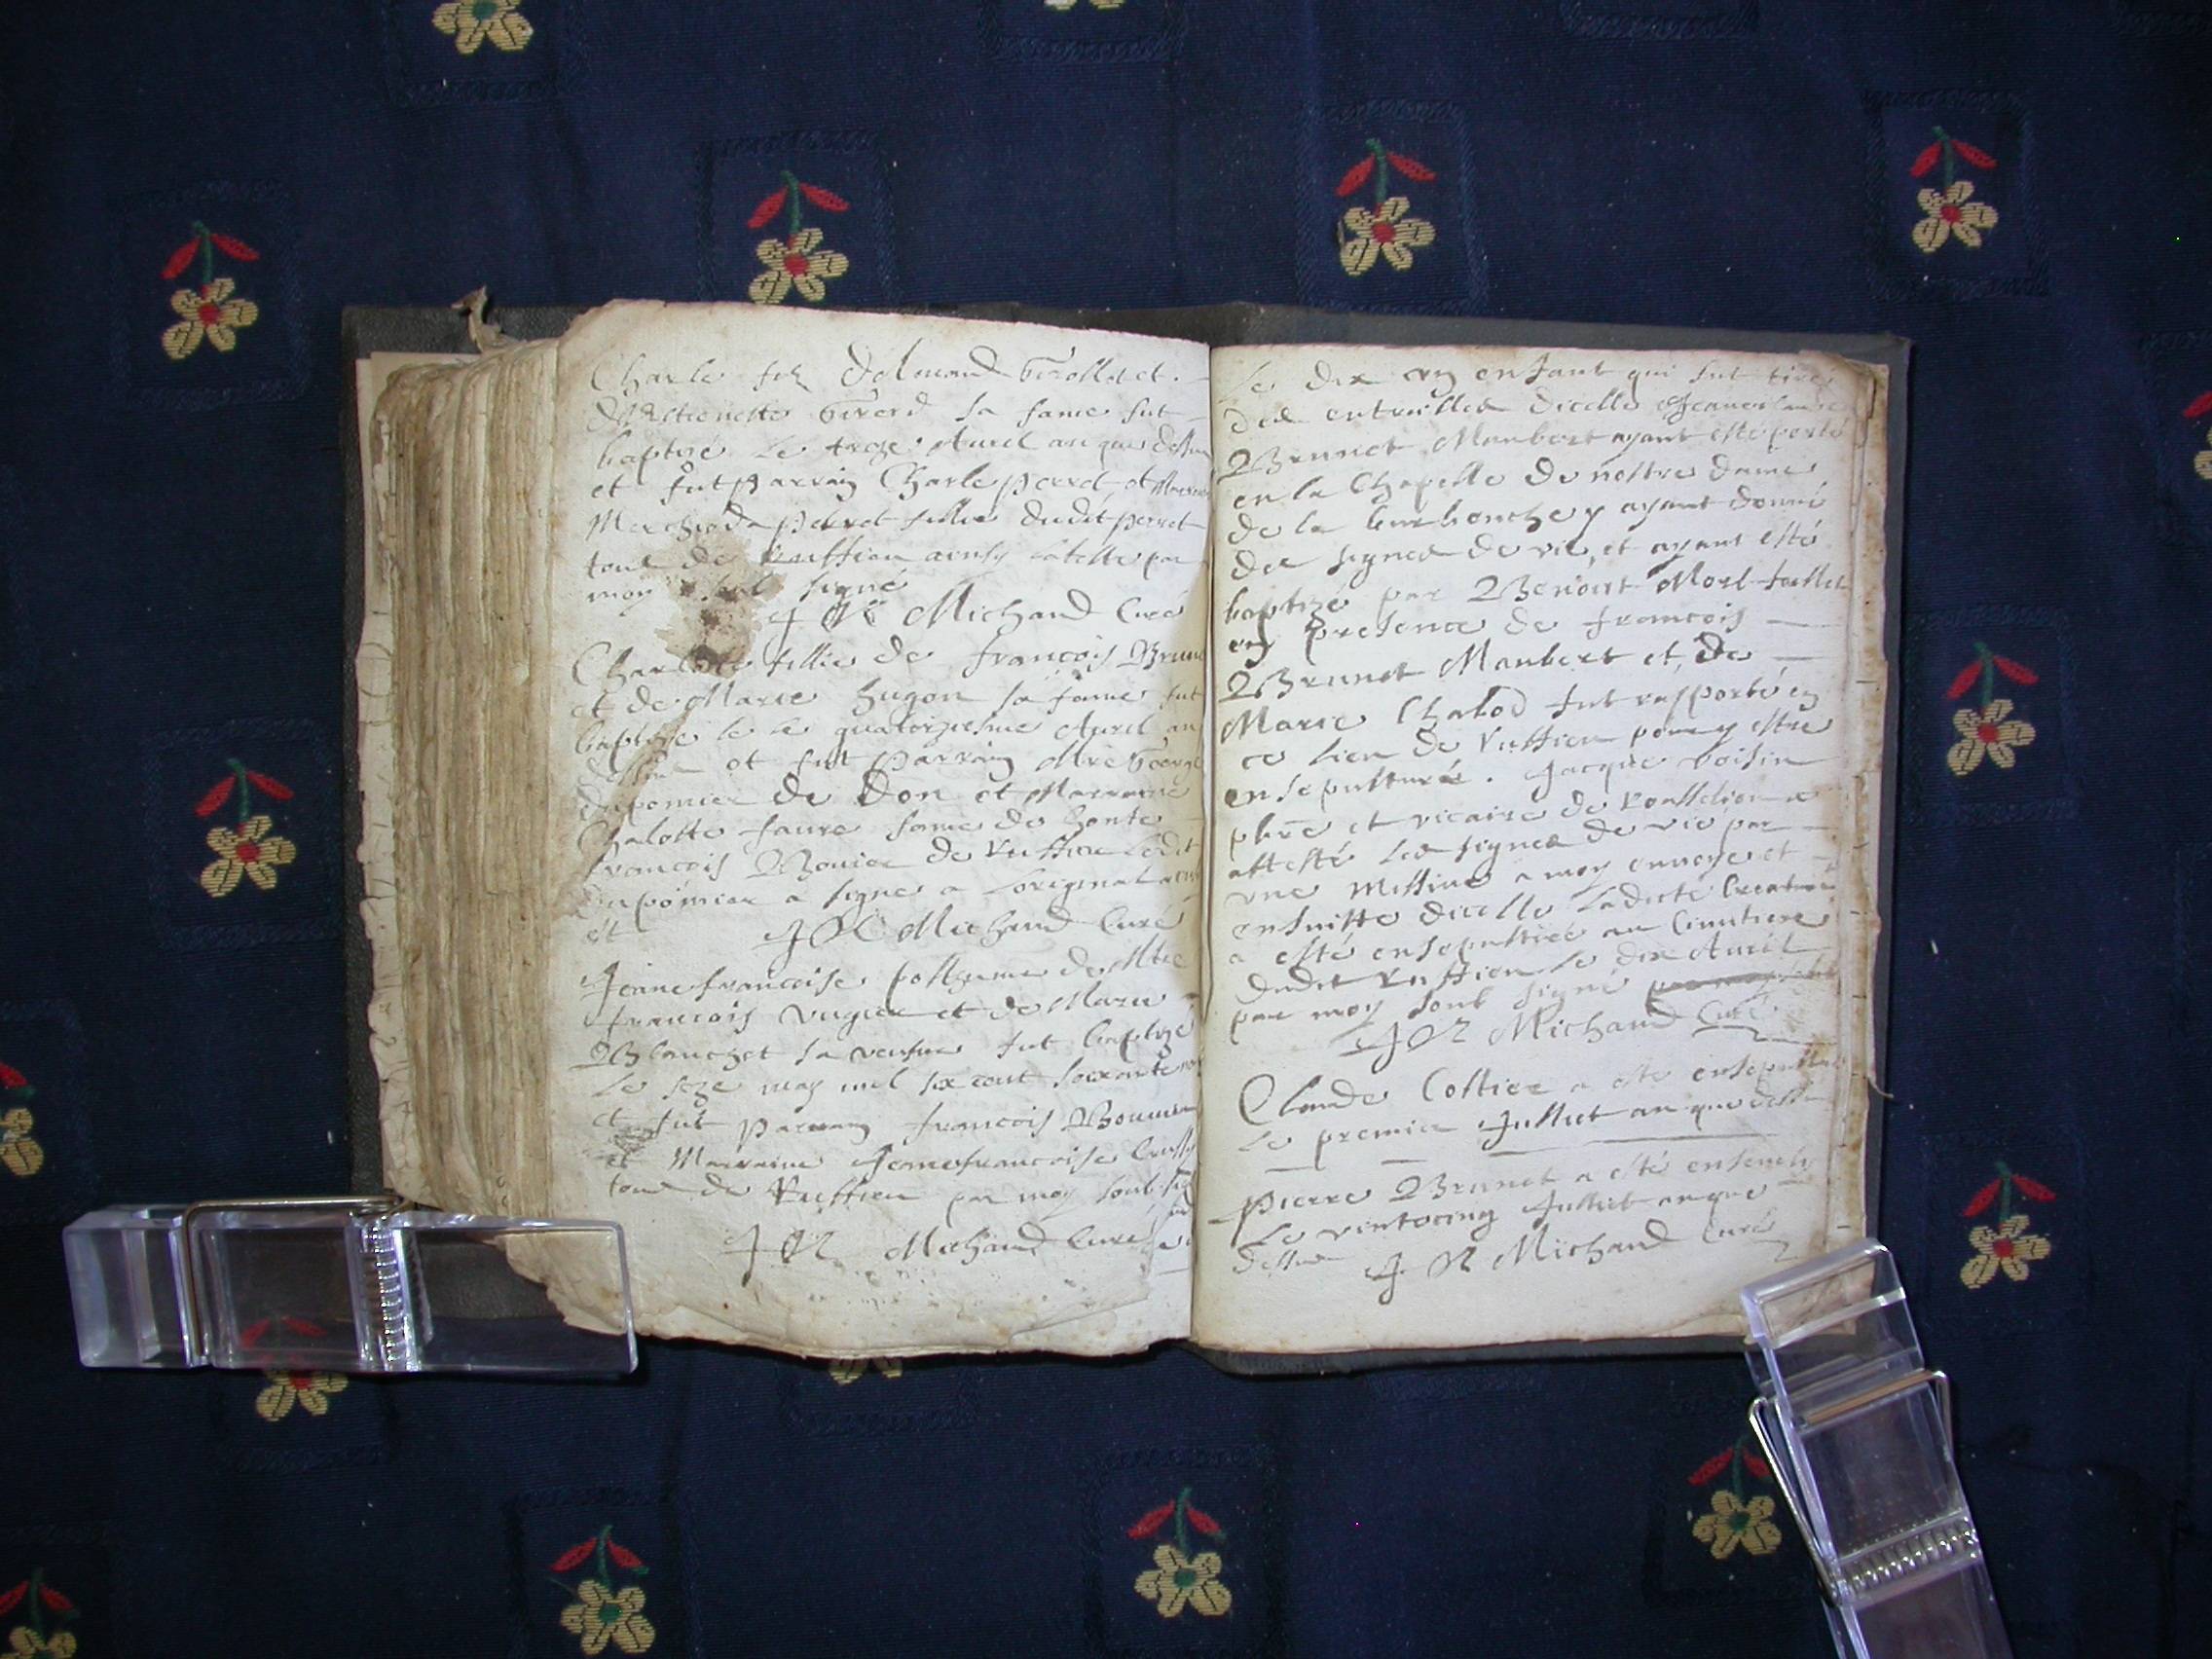 Charle filz d'Edmond Girollet et
d'Estienette Girerd sa fame fut
baptizé le treze Auril an que dessus
et fut parrain Charle perret et Marraine
perret fillie dudit perret
tous de Vuissieu ainsy l'atteste par
moy soub signé
J R Michaud Curé
Charlotte fillie de françois Brunet
et de Marie hugon sa fame fut
baptizee le le quatorziesme Auril an
dessus et fut parrain Mre George
dupomier de Don et Marraine
Chalotte faure fame de honte
francois Bouier de Vuissieu ledit
dupomier a signer a l'original
et J R Michaud Curé
Jeane francoise postgume de Mtre
francois vugier et de Marie
Blanchet sa veufue fut baptizé
le seze may mil six cent soixante
et fut parrain francois Bouuier
et Marraine Jeanefrancoise
tous de Vuissieu par moy soub sig
J R Michaud Curé
Le dix un enfant qui fut tiré
des entrailles dicelle Jeaneclaude
Brunet Manbert ayant esté porté
en la Chapelle de nostre dame
de la y ayant donné
des signes de vie, et ayant esté
baptizé par Benoist Morel
en presence de francois
Brunet Manbert et de
Marie Chabod fut rapporté en
ce lieu de Vussieu pour y estre
ensepulturé. Jacque voisin
pbre et vicaire de Rousselion a
attesté les signes de vie par
une Missiue a moy enuoye et
ensuitte dicelle ladicte Creature
a esté ensepultree au Cimitiere
dudit Vussieu le dix Auril
par moy soub signé
J R Michaud Curé
Claude Cottier a esté ensepulturé
le premier Jullict an que dessus
Pierre Brunet a esté enseuely
Le vintocinq Jullict an que
dessus J R Michaud Curé